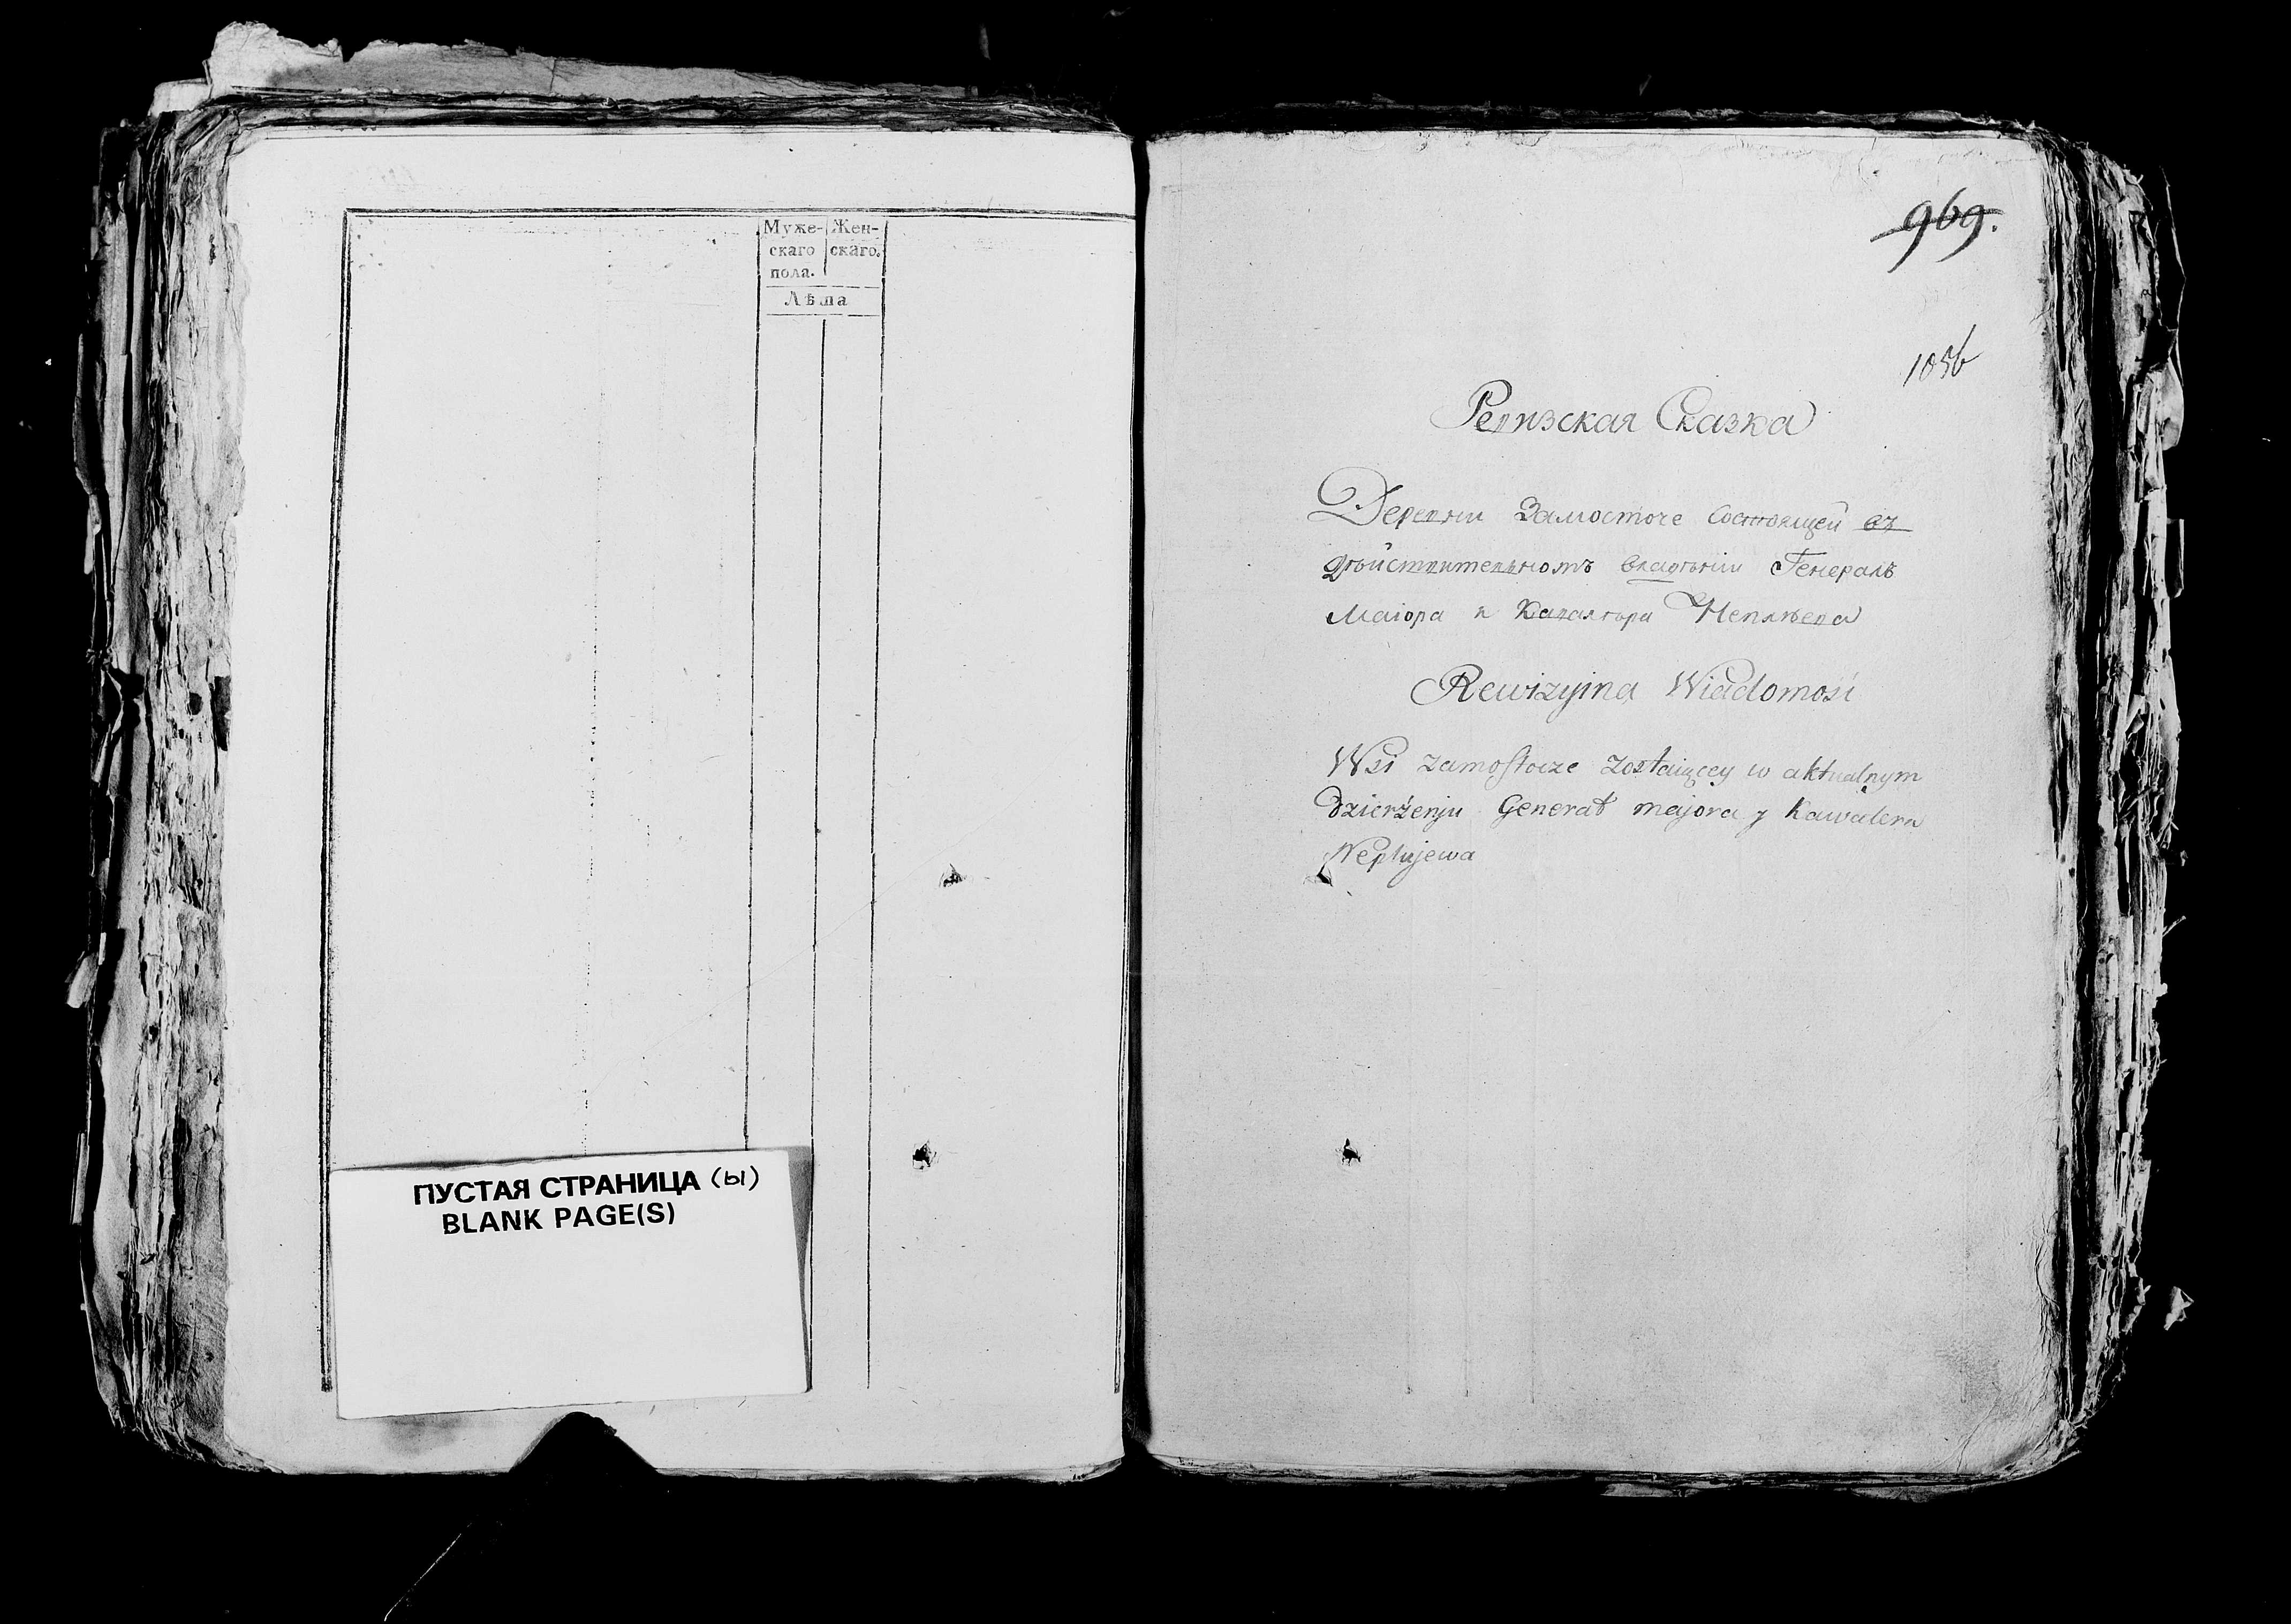 Муже- Жен-
скаго скаго.
пола.
Лѣта
ПУСТАЯ СТРАНИЦА (ы)
BLANK PAGE(S)
969.
1056
Ревизская Сказка
Деревни Замосточе Состоящей въ
дѣйствительномъ владѣніи Генералъ
Маіора и Кавалѣра Неплѣева
Rewizyina Wiadomość
Wsi Zamostocze zostaiącey w aktualnym
Dzierżenju Generał majora y Kawalera
Neplujewa